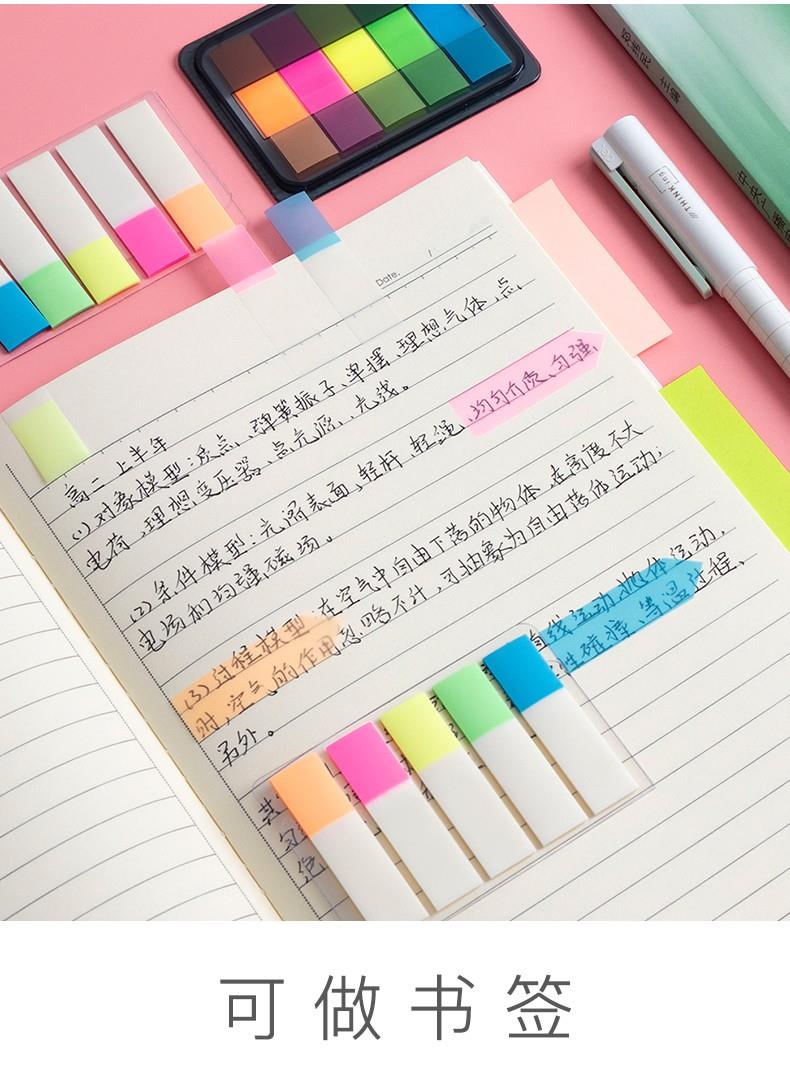 Date.
高二上半年
(1) 对象模型:质点、弹簧振子、单摆、理想气体、点
电荷、理想变压器、点光源、光线。
(2) 条件模型:光滑表面、轻杆、轻绳、均匀介质、匀强
电场和匀强磁场。
(3) 过程模型:在空气中自由下落的物体,在高度不大
时,空气的作用忽略不计,可抽象为自由落体运动;
另外。直线运动、抛体运动、
性碰撞、等温过程、
THINKing
主编
可做书签